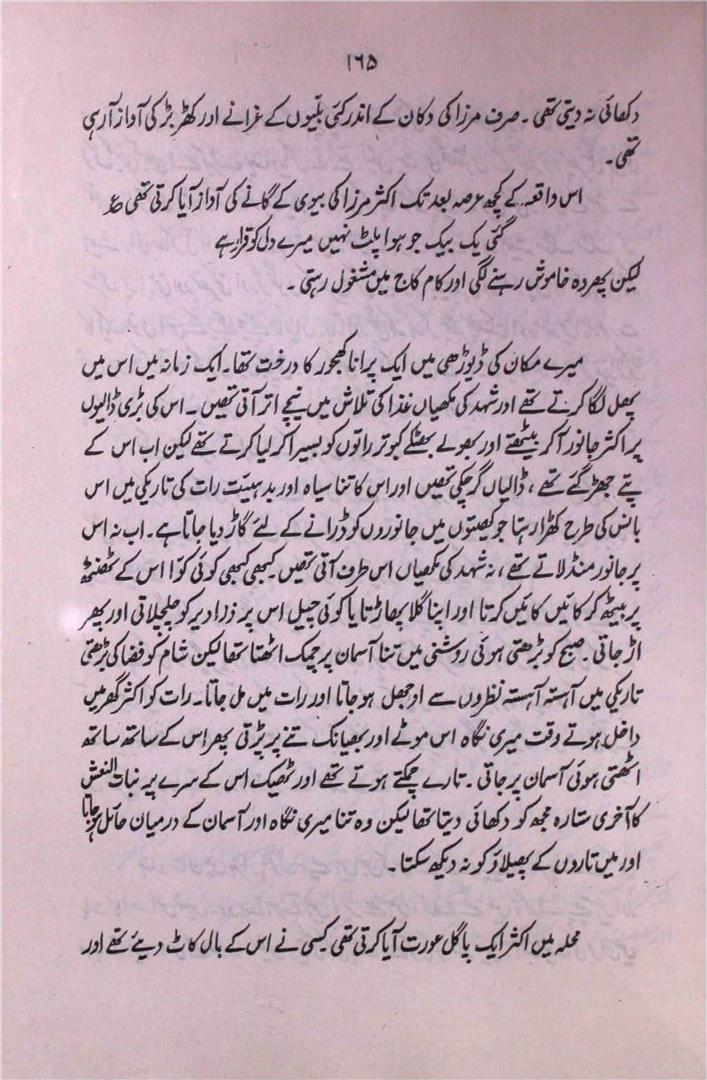 ۱۶۵
دکھائی نہ دیتی تھی ۔ صرف مرزا کی دکان کے اندر کئی بلّیوں کے غرانے اور کھڑ بڑ کی آواز آ رہی
تھی ۔
اس واقعہ کے کچھ عرصہ بعد تک اکثر مرزا کی بیوی کے گانے کی آواز آیا کرتی تھی ؏
گئی یک بیک جو ہوا پلٹ نہیں میرے دل کو قرار ہے
لیکن پھر وہ خاموش رہنے لگی اور کام کاج میں مشغول رہتی ۔
میرے مکان کی ڈیوڑھی میں ایک پرانا کھجور کا درخت تھا۔ ایک زمانہ میں اس میں
پھل لگا کرتے تھے اور شہد کی مکھیاں غذا کی تلاش میں نیچے اتر آتی تھیں ۔ اس کی بڑی ڈالیوں
پر اکثر جانور آ کر بیٹھتے اور بھولے بھٹکے کبوتر راتوں کو بسیرا کر لیا کرتے تھے لیکن اب اس کے
پتے جھڑ گئے تھے ، ڈالیاں گر چکی تھیں اور اس کا تنا سیاہ اور بد ہیئت رات کی تاریکی میں اس
بانس کی طرح کھڑا رہتا جو کھیتوں میں جانوروں کو ڈرانے کے لئے گاڑ دیا جاتا ہے ۔ اب نہ اس
پر جانور منڈلاتے تھے ، نہ شہد کی مکھیاں اس طرف آتی تھیں ۔ کبھی کبھی کوئی کوّا اس کے ٹھنٹھ
پر بیٹھ کر کائیں کائیں کرتا اور اپنا گلا پھاڑتا یا کوئی چیل اس پر ذرا دیر کو چلچلاتی اور پھر
اڑ جاتی ۔ صبح کو بڑھتی ہوئی روشنی میں تنا آسمان پر چمک اٹھتا تھا لیکن شام کو فضا کی بڑھتی
تاریکی میں آہستہ آہستہ نظروں سے اوجھل ہو جاتا اور رات میں مل جاتا ۔ رات کو اکثر گھر میں
داخل ہوتے وقت میری نگاہ اس موٹے اور بھیانک تنے پر پڑتی پھر اس کے ساتھ ساتھ
اٹھتی ہوئی آسمان پر جاتی ۔ تارے چمکتے ہوتے تھے اور ٹھیک اس کے سرے پر نبات النعش
کا آخری ستارہ مجھ کو دکھائی دیتا تھا لیکن وہ تنا میری نگاہ اور آسمان کے درمیان حائل ہو جاتا
اور میں تاروں کے پھیلاؤ کو نہ دیکھ سکتا ۔
محلہ میں اکثر ایک پاگل عورت آیا کرتی تھی کسی نے اس کے بال کاٹ دیئے تھے اور